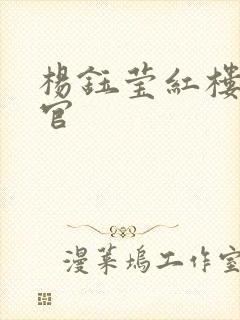 楊鈺莹紅樓
官
漫菓塢工作室